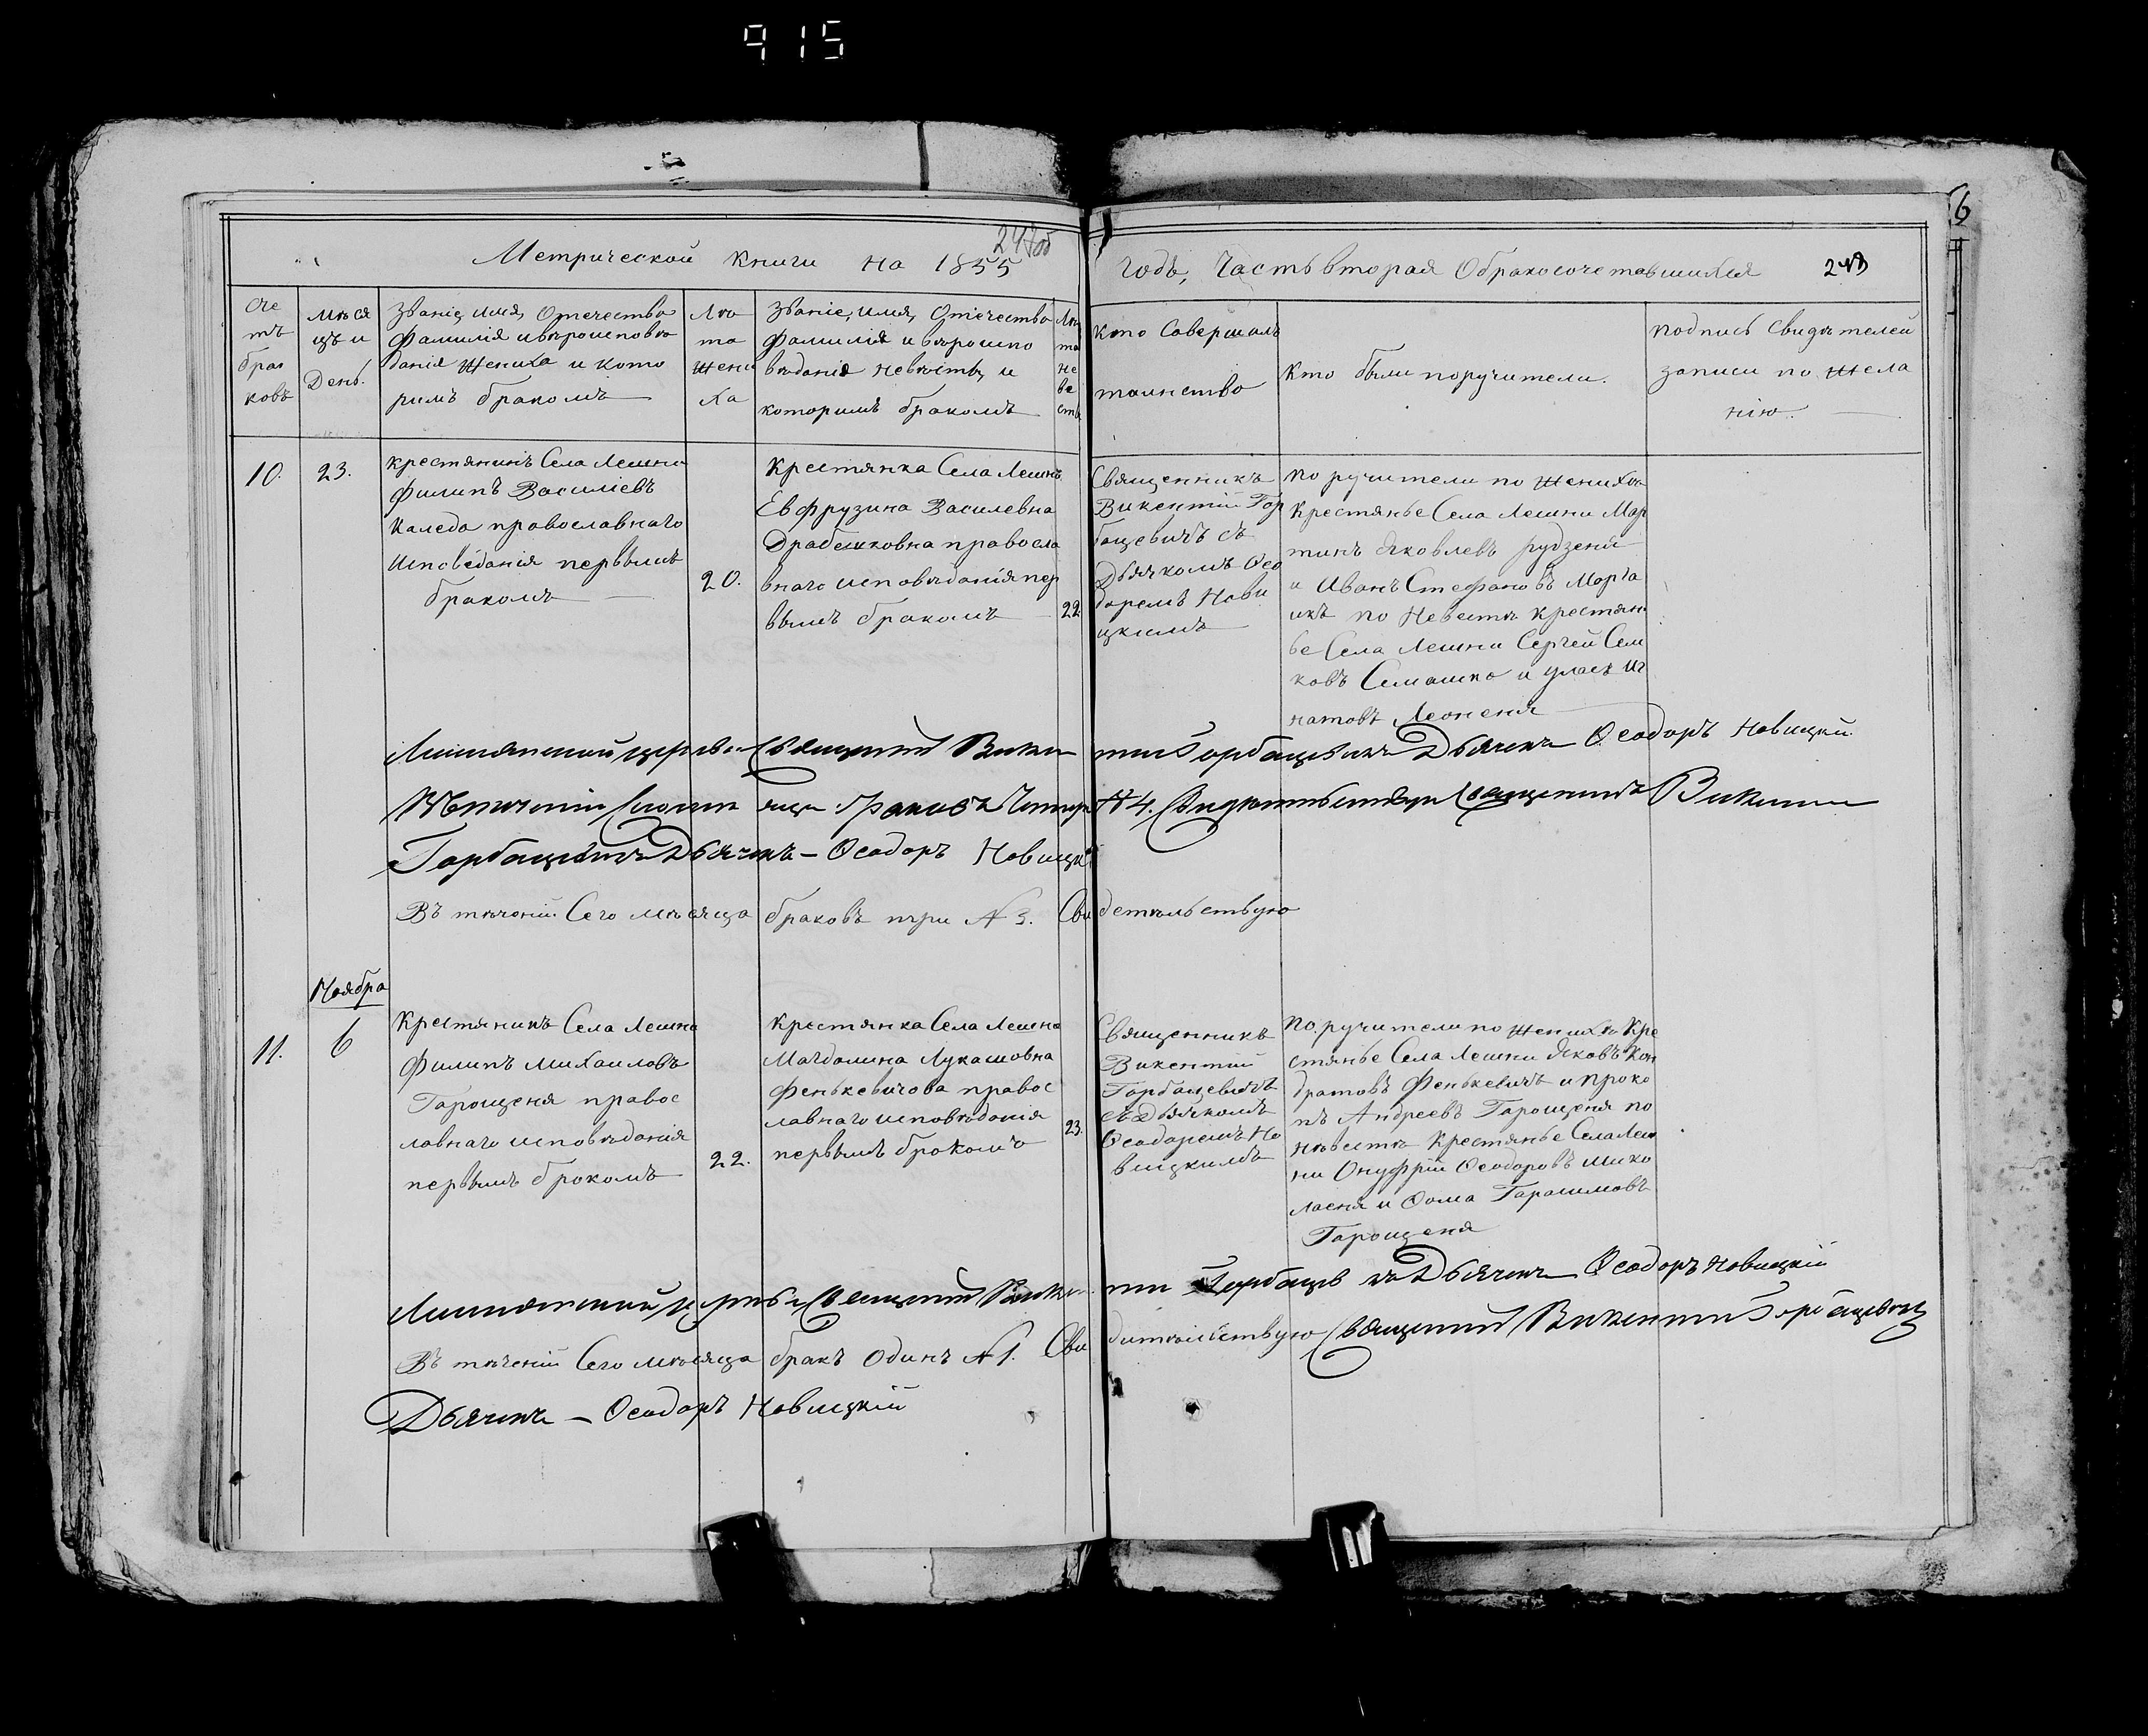 915
6
Метрической книги на 1855
годъ, Часть вторая О бракосочетавшихся
Сче
тъ
брак
ковъ
Мѣся
цъ и
День.
Званіе, имя, Отечество
фамилія и вѣроисповѣ
данія жениха и кото
римъ бракомъ
Лѣ
та
жени
ха
Званіе, имя, Отечество
фамилія и вѣроиспо
вѣданія невѣсты, и
которимъ бракомъ
Лѣ
та
не
вѣ
сты
Кто Совершалъ
таинство
Кто были поручители.
подпись Свидѣтелей
записи по жела
нію.
10.
23.
крестянинъ Села Лешни
филипъ Василіевъ
Каледа православнаго
Исповѣданія первымъ
бракомъ
20.
Крестянка Села Лешнѣ
Евфрузина Василевна
Драбешковна правосла
внаго исповѣданія пер
вымъ бракомъ
22.
Священникъ
Викентій Гор
бацевичъ съ
Дьячкомъ Ѳео
доремъ Нови
цкимъ
поручители по женихѣ
крестянье Села Лешни Мар
тинъ Яковлевъ рудзеня
и Иванъ Стефановъ Марга
икъ по Невестѣ крестян
ье Села Лешни Сергей Сем
ковъ Семашко и уласъ Иг
натовъ Леоненя
Священникъ Викен
тій Горбацевичъ Дьячекъ Ѳеодоръ Новицкій
браковъ Четыре
№ 4. Священникъ Викентій
Горбацевичъ Дьячекъ – Ѳеодоръ Новицкій
Въ тѣченій Сего мѣсяца браковъ три № 3. Сви
детѣльствую
Ноября
11.
6
Крестянинъ Села Лешни
филипъ Михаиловъ
Гарощеня правос
лавнаго исповѣданія
первымъ брокомъ
22.
крестянка Села Лешни
Магдалина Лукашовна
фенькевичова правос
лавнаго исповѣданія
первымъ брокомъ
23.
Священникъ
Викентій
Горбацевичъ
съ Дьячкомъ
Ѳеодоремъ Но
вицкимъ
поручители по женихѣ Кре
стянье Села Лешни Яковъ Кон
дратовъ Фенькевичъ и проко
пъ Андреевъ Гарощеня по
невѣстѣ крестянье Села Леш
ни Онуфрій Ѳеодоровъ Мико
лаеня и Ѳома Гарасимовъ
Гарощеня
Священникъ Викен
тій Горбацевичъ Дьячекъ Ѳеодоръ Новицкій
Въ тѣченій Сего мѣсяца бракъ Одинъ № 1. Сви
дитѣльствую Священникъ Викентій Горбацевичъ
Дьячекъ – Ѳеодоръ Новицкій